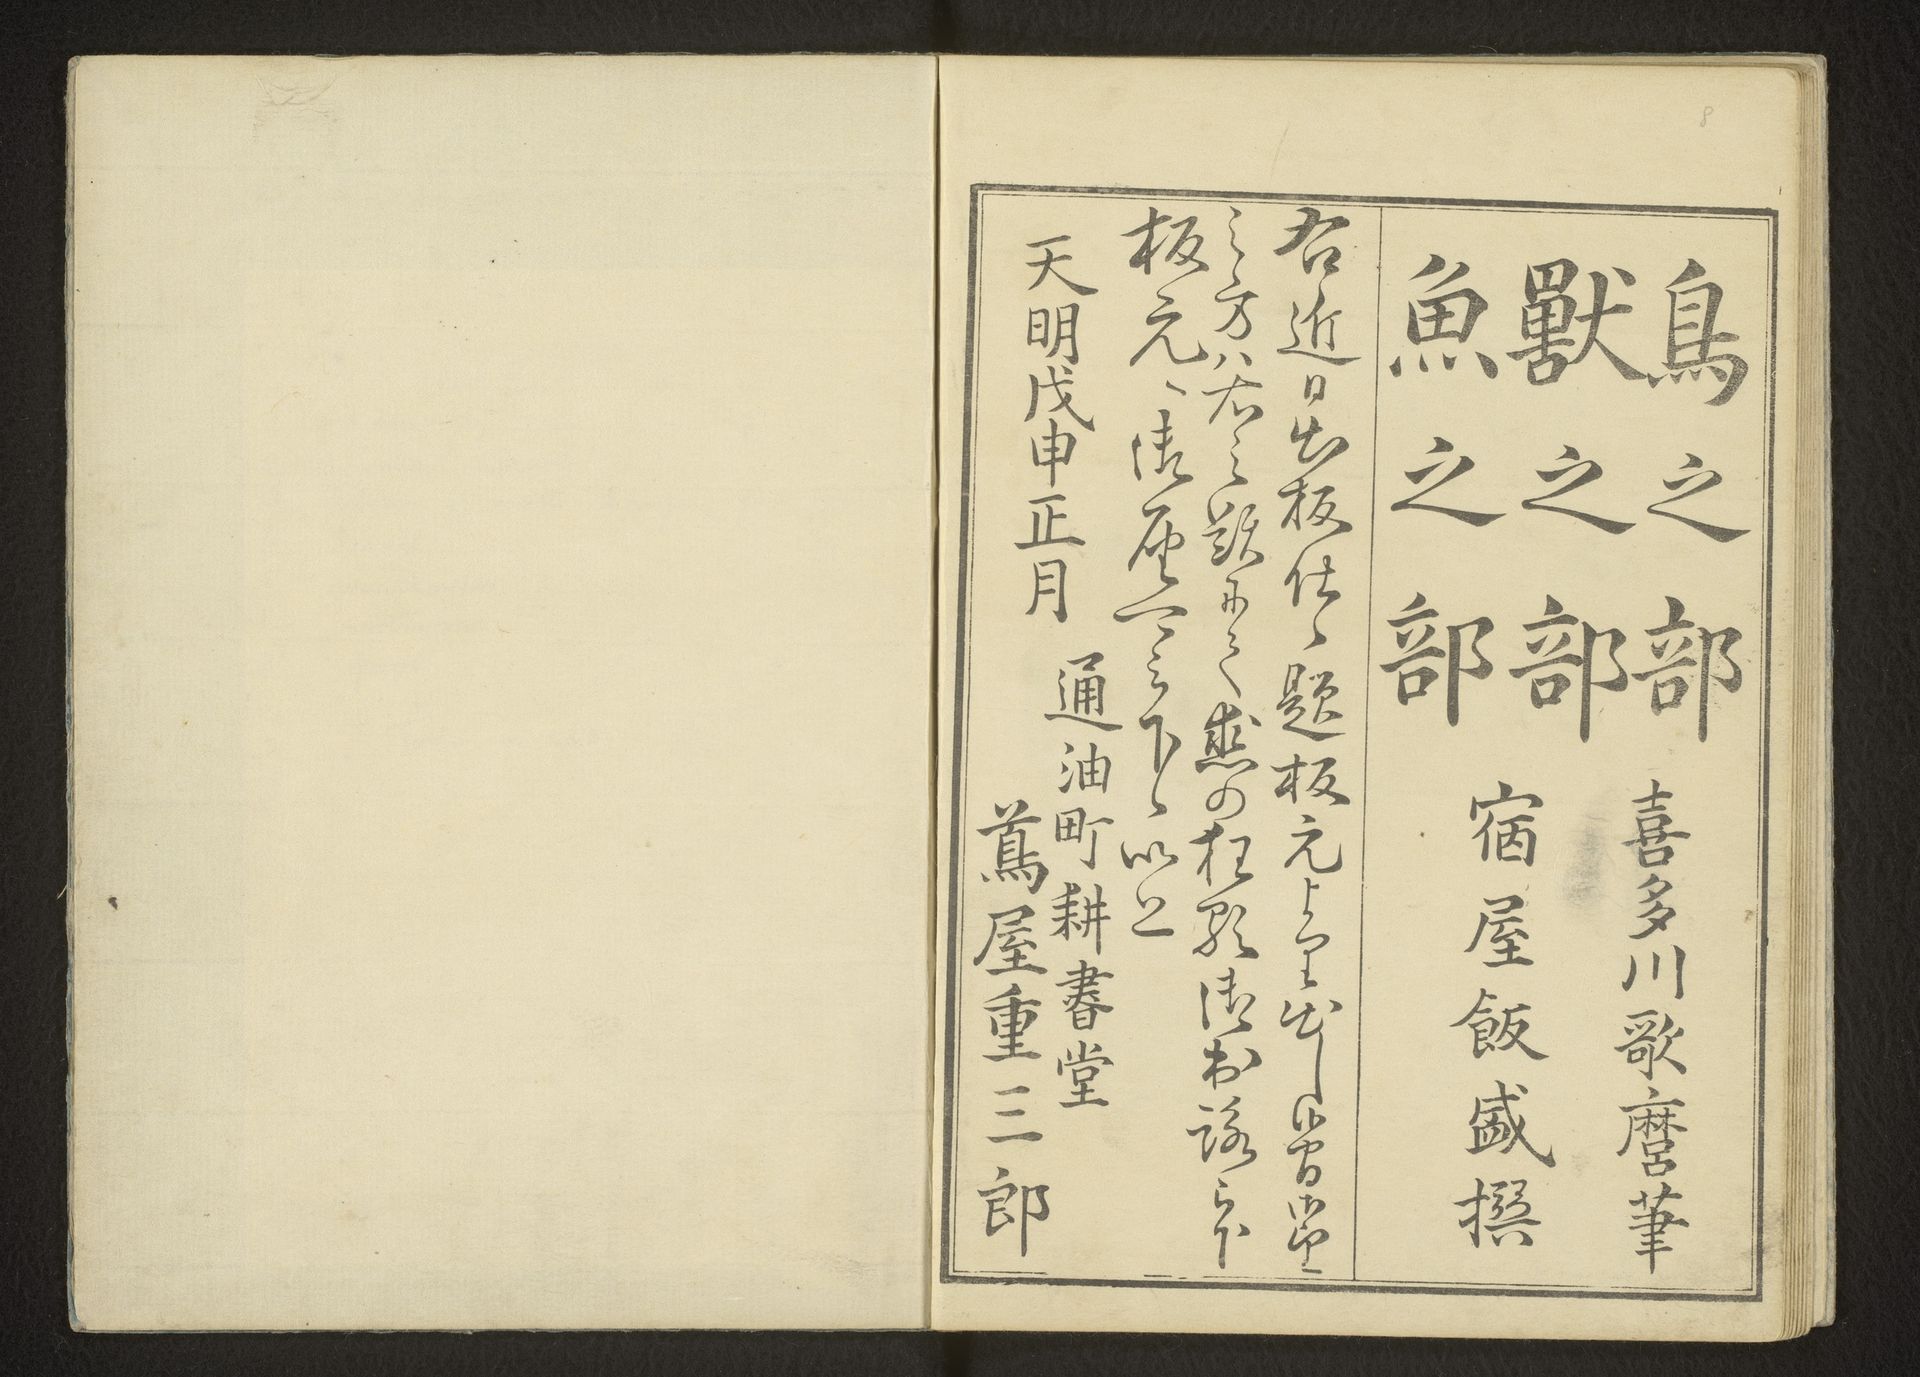 鳥之部
獣之部
魚之部
喜多川歌麿筆
宿屋飯盛撰
右近日出板仕候題板元より出し候間御望
之方ハ右之題にて恋の狂歌御出詠可被下候
板元へ御座候以上
天明戊申正月
通油町耕書堂
蔦屋重三郎